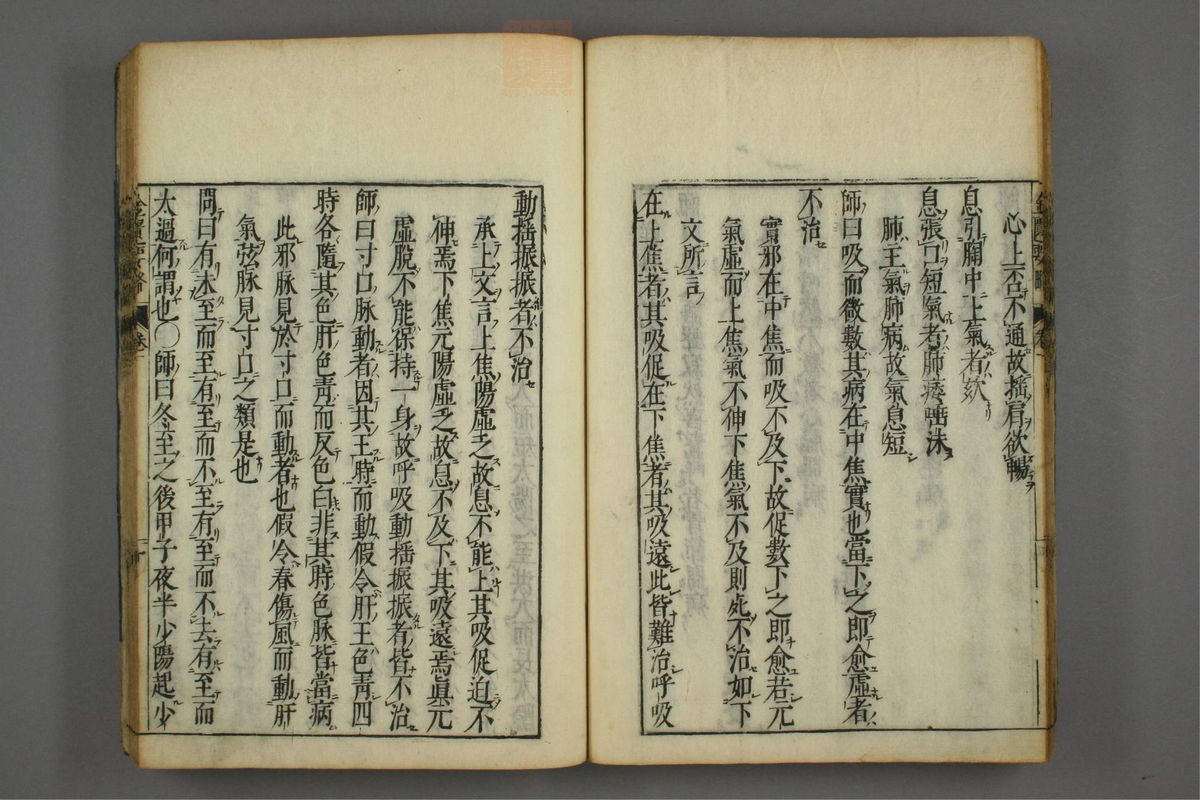 金匱要略 卷一
心上否不通故揺肩欲暢
息引胸中上氣者欬
息張口短氣者肺痿唾沫
肺主氣肺病故氣息短
師曰吸而微數其病在中焦實也當下之即愈虛者
不治
實邪在中焦而吸不及下故促數下之即愈若元
氣虛而上焦氣不伸下焦氣不及則死不治如下
文所言
在上焦者其吸促在下焦者其吸遠此皆難治呼吸
動揺振振者不治
承上文言上焦陽虛乏故息不能上其吸促迫不
伸焉下焦元陽虛乏故息不及下其吸遠焉眞元
虛脫不能保持一身故呼吸動揺振振者皆不治
師曰寸口脉動者因其王時而動假令肝王色靑四
時各隨其色肝色靑而反色白非其時色脉皆當病
此邪脉見於寸口而動者也假令春傷風而動肝
氣弦脉見寸口之類是也
問曰有未至而至有至而不至有至而不去有至而
太過何謂也○師曰冬至之後甲子夜半少陽起少
卷一